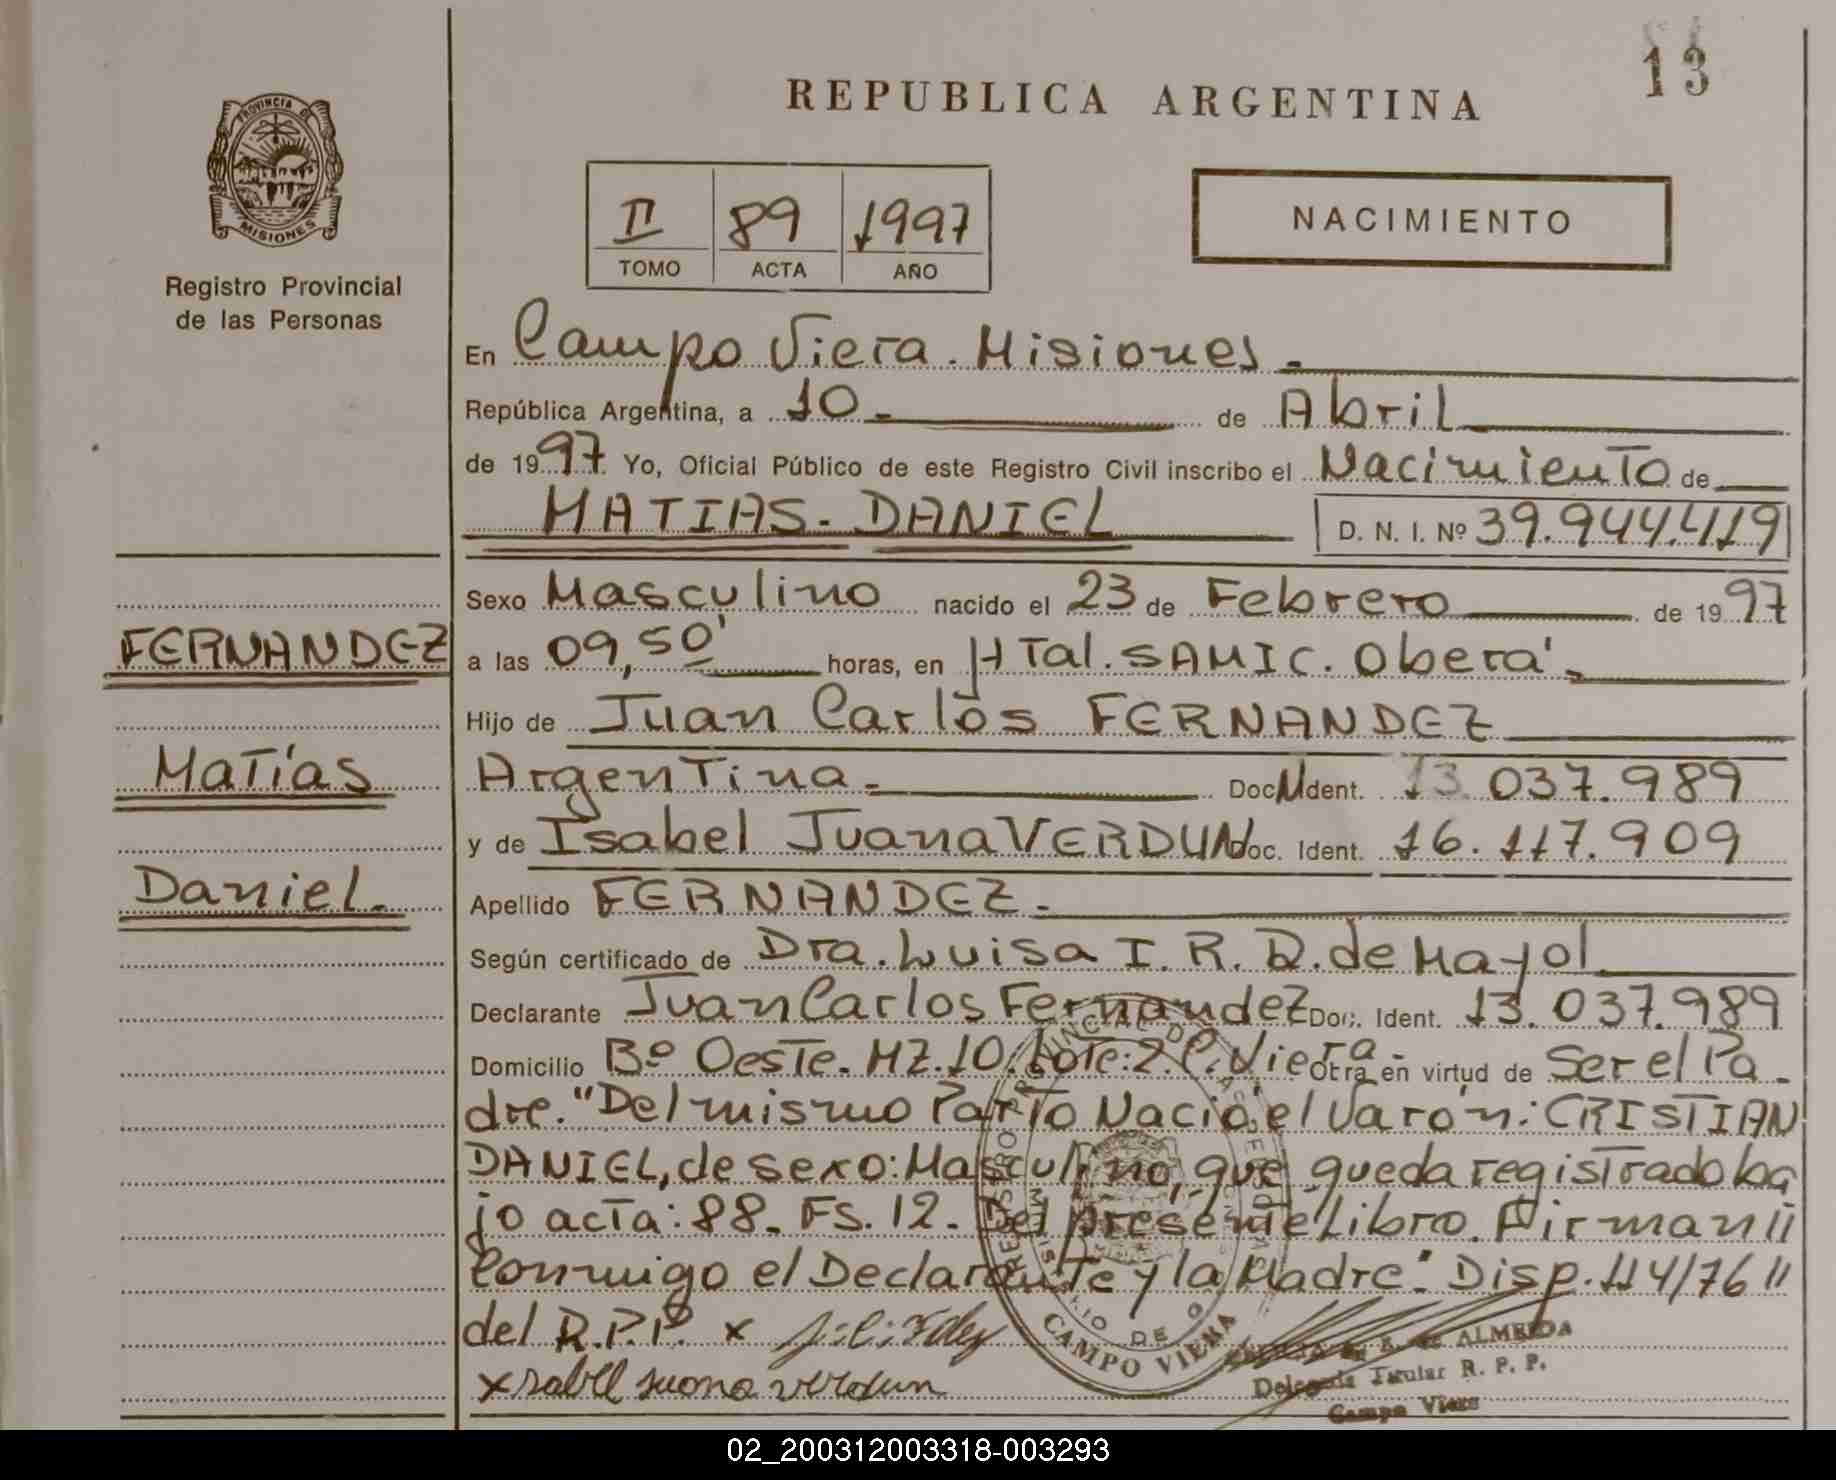 13
REPUBLICA ARGENTINA
PROVINCIA D
MISIONES
Registro Provincial
de las Personas
II 89 1997
TOMO ACTA AÑO
NACIMIENTO
En Campo Viera. Misiones.
República Argentina, a 10 de Abril
de 1997. Yo, Oficial Público de este Registro Civil inscribo el Nacimiento de
MATIAS. DANIEL D. N. I. Nº 39.944.419
Sexo Masculino nacido el 23 de Febrero de 1997
FERNANDEZ
a las 09,50' horas, en HTal. SAMIC. Oberá.
Hijo de Juan Carlos FERNANDEZ
Matías
Argentina. Doc. Ident. 13.037.989
y de Isabel Juana VERDUN Doc. Ident. 16.117.909
Daniel.
Apellido FERNANDEZ.
Según certificado de Dra. Luisa I. R. D. de Mayol
Declarante Juan Carlos Fernandez Doc. Ident. 13.037.989
Domicilio Bº Oeste. MZ.10. Lote:2. C. Viera. Otra en virtud de Ser el Pa-
dre. "Del mismo Parto Nació el Varón: CRISTIAN
DANIEL, de sexo: Masculino, que queda registrado ba
jo acta: 88. Fs. 12. Del presente Libro. Firman
Conmigo el Declarante y la Madre". Disp. 114/76
del R.P.P. x
x Isabel Juana Verdun
CAMPO VIERA
de ALMEIDA
Delegada Titular R. P. P.
Campo Viera
02_200312003318-003293